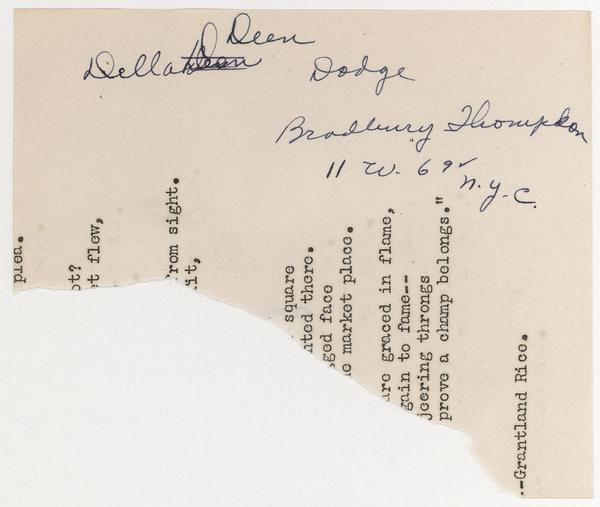 Deen
Della Deen Dodge
Bradbury Thompson
11 W. 69
N.Y.C.
plea.
ot?
et flew,
from sight.
it,
square
nted there.
ged face
e market place.
are graced in flame,
gain to fame--
jeering throngs
prove a champ belongs."
--Grantland Rice.